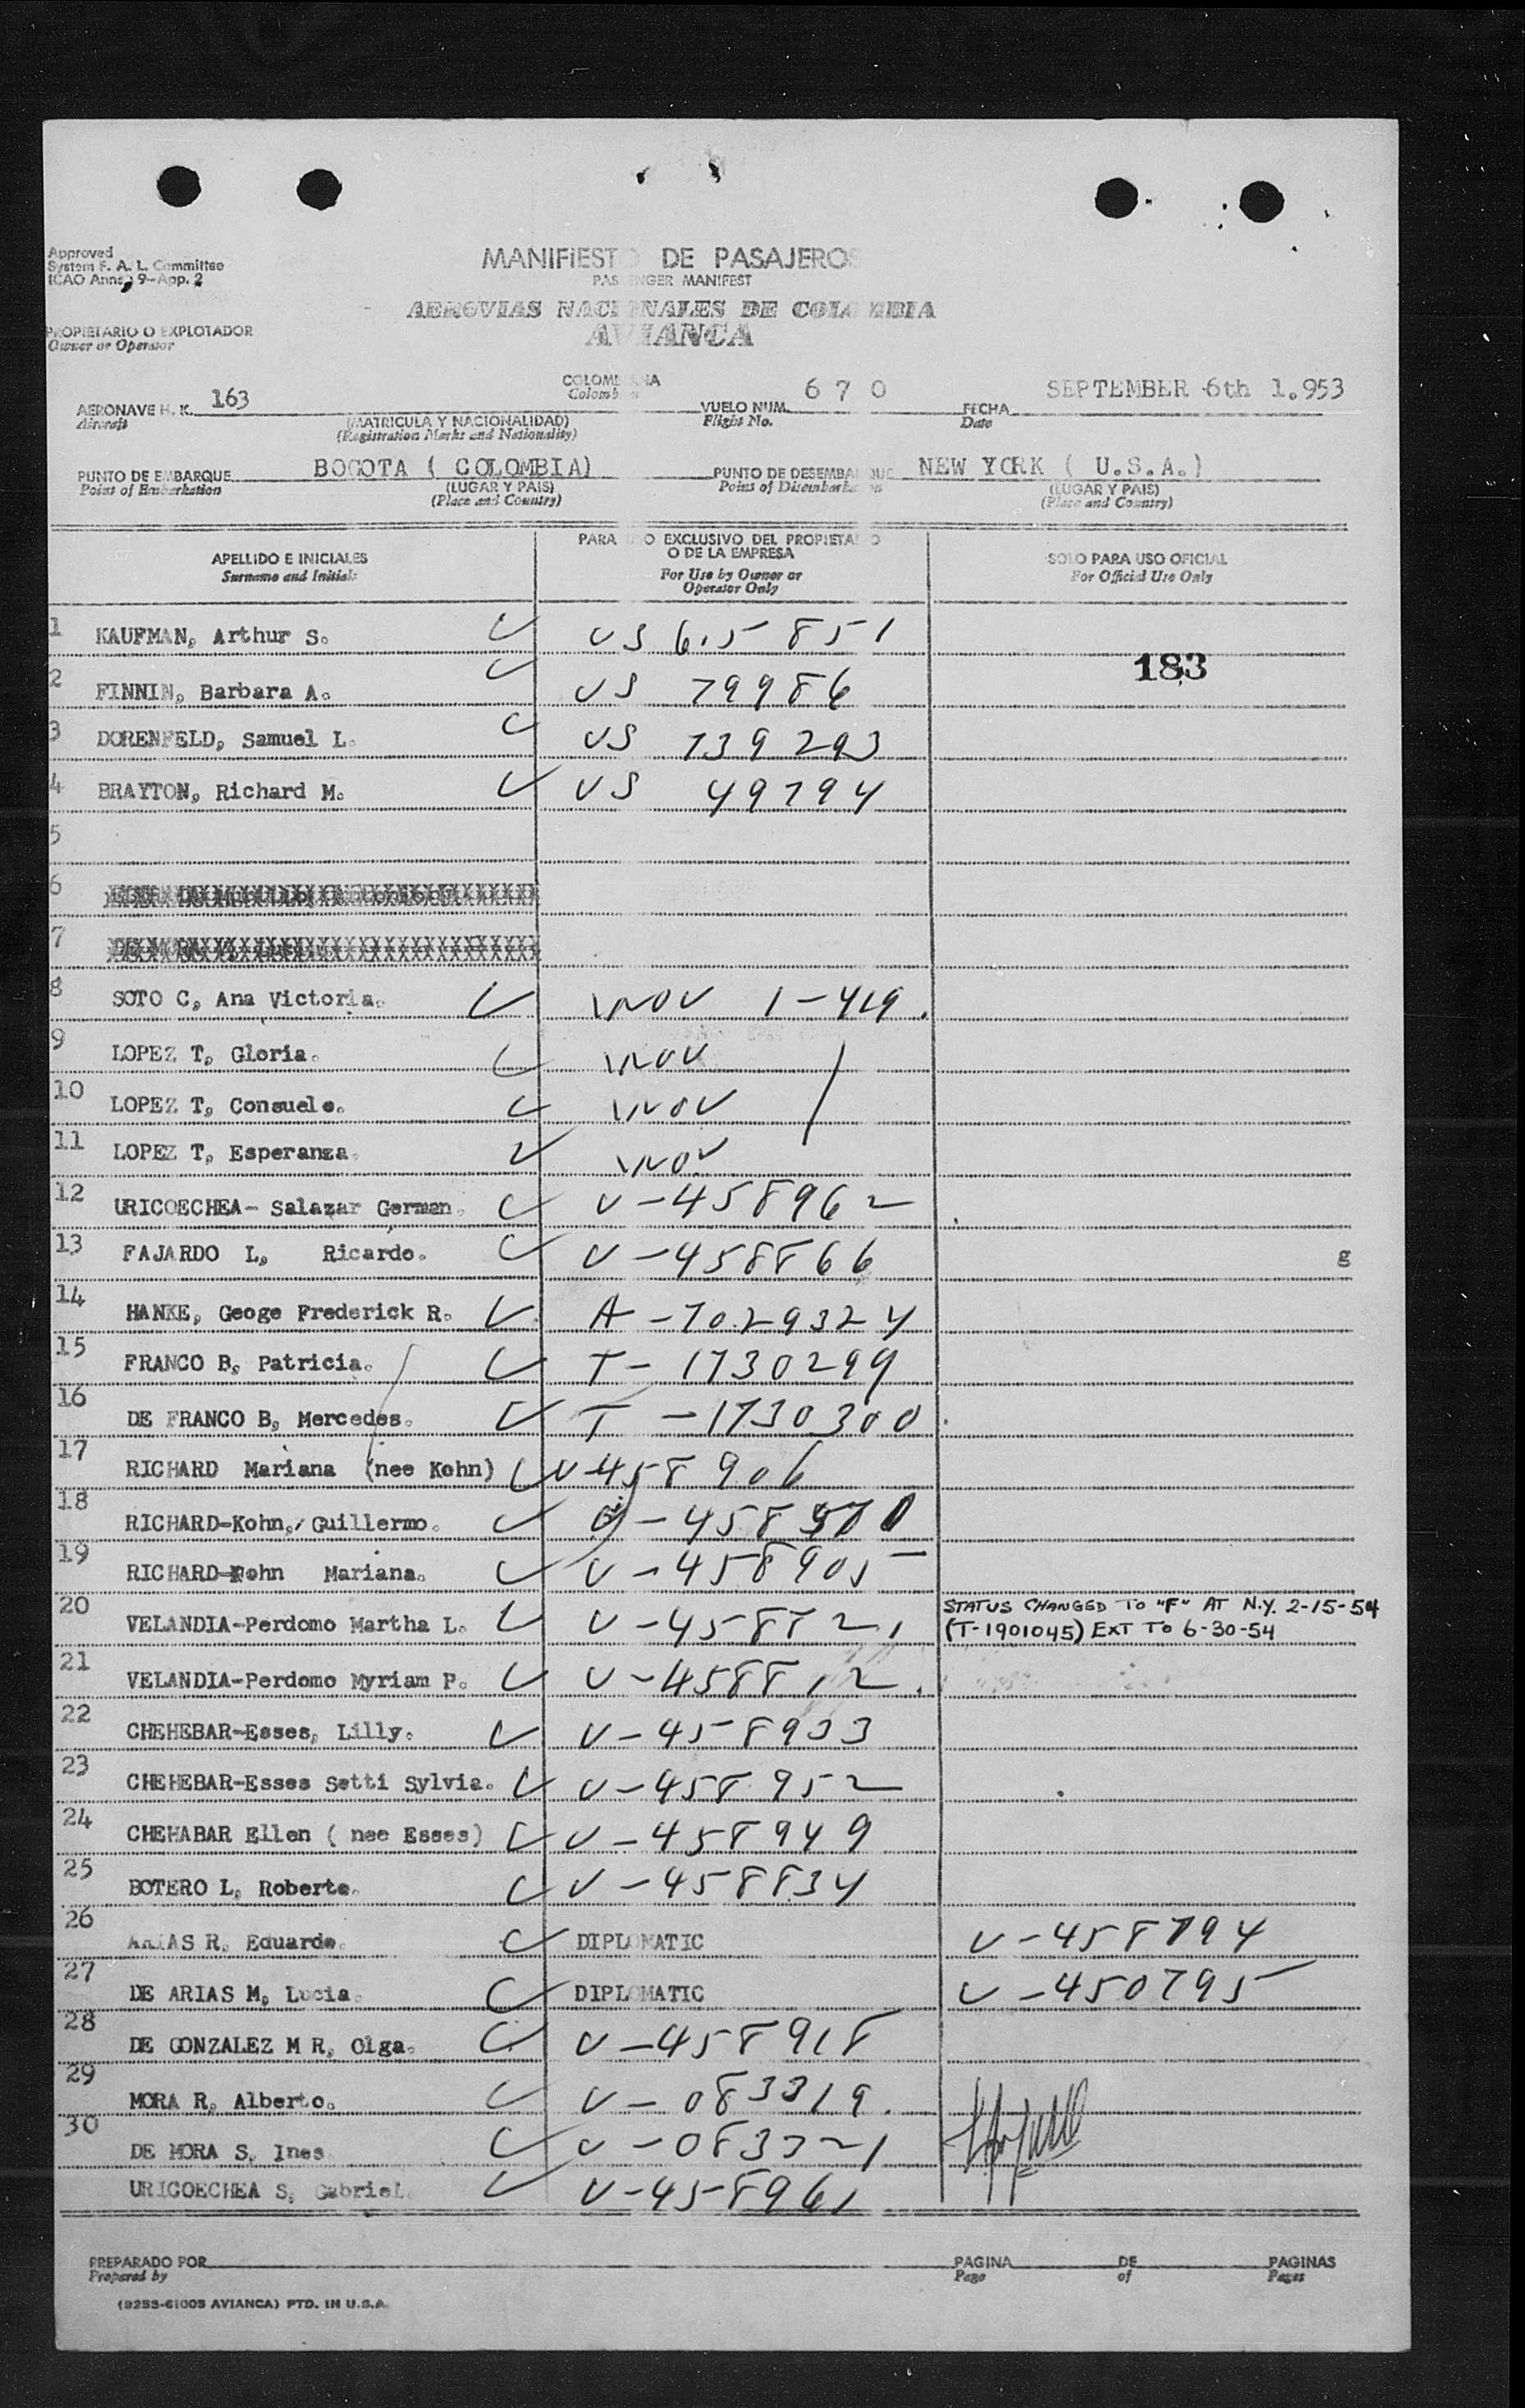 Approved
System F. A. L. Committee
ICAO Annex 9-App. 2
MANIFIESTO DE PASAJEROS
PASSENGER MANIFEST
AEROVIAS NACIONALES DE COLOMBIA
AVIANCA
PROPIETARIO O EXPLOTADOR
Owner or Operator
AERONAVE H. K. 163 COLOMBIANA VUELO NUM. 670 FECHA SEPTEMBER 6th 1.953
Aircraft Colombian Flight No. Date
(MATRICULA Y NACIONALIDAD)
(Registration Marks and Nationality)
PUNTO DE EMBARQUE BOGOTA ( COLOMBIA) PUNTO DE DESEMBARQUE NEW YORK ( U.S.A.)
Point of Embarkation (LUGAR Y PAIS) Point of Disembarkation (LUGAR Y PAIS)
(Place and Country) (Place and Country)
APELLIDO E INICIALES PARA USO EXCLUSIVO DEL PROPIETARIO O DE LA EMPRESA SOLO PARA USO OFICIAL
Surname and Initials For Use by Owner or Operator Only For Official Use Only
1 KAUFMAN, Arthur S. US 615851
183
2 FINNIN, Barbara A. US 79986
3 DORENFELD, Samuel L. US 739293
4 BRAYTON, Richard M. US 49794
5
6
7
8 SOTO C, Ana Victoria. INOV 1-419.
9 LOPEZ T, Gloria. INOV
10 LOPEZ T, Consuelo. INOV
11 LOPEZ T, Esperanza. INOV
12 URICOECHEA- Salazar German. V-458962
13 FAJARDO L, Ricardo. V-458866 g
14 HANKE, Geoge Frederick R. A-7029324
15 FRANCO B, Patricia. T-1730299
16 DE FRANCO B, Mercedes. T-1730300
17 RICHARD Mariana (nee Kohn) V-458906
18 RICHARD-Kohn, Guillermo.
19 RICHARD-Kohn Mariana. V-458905
20 VELANDIA-Perdomo Martha L. V-458821 STATUS CHANGED TO "F" AT N.Y. 2-15-54
(T-1901045) EXT TO 6-30-54
21 VELANDIA-Perdomo Myriam P. V-458812.
22 CHEHEBAR-Esses, Lilly. V-458933
23 CHEHEBAR-Esses Setti Sylvia. V-458952
24 CHEHABAR Ellen ( nee Esses) V-458949
25 BOTERO L, Roberto. V-458834
26 ARIAS R, Eduardo. DIPLOMATIC V-458794
27 DE ARIAS M, Lucia. DIPLOMATIC V-450795
28 DE GONZALEZ M R, Olga. V-458918
29 MORA R, Alberto. V-083319.
30 DE MORA S, Ines V-083321
URICOECHEA S, Gabriel. V-458961
PREPARADO POR PAGINA DE PAGINAS
Prepared by Page of Pages
(9253-61005 AVIANCA) PTD. IN U.S.A.